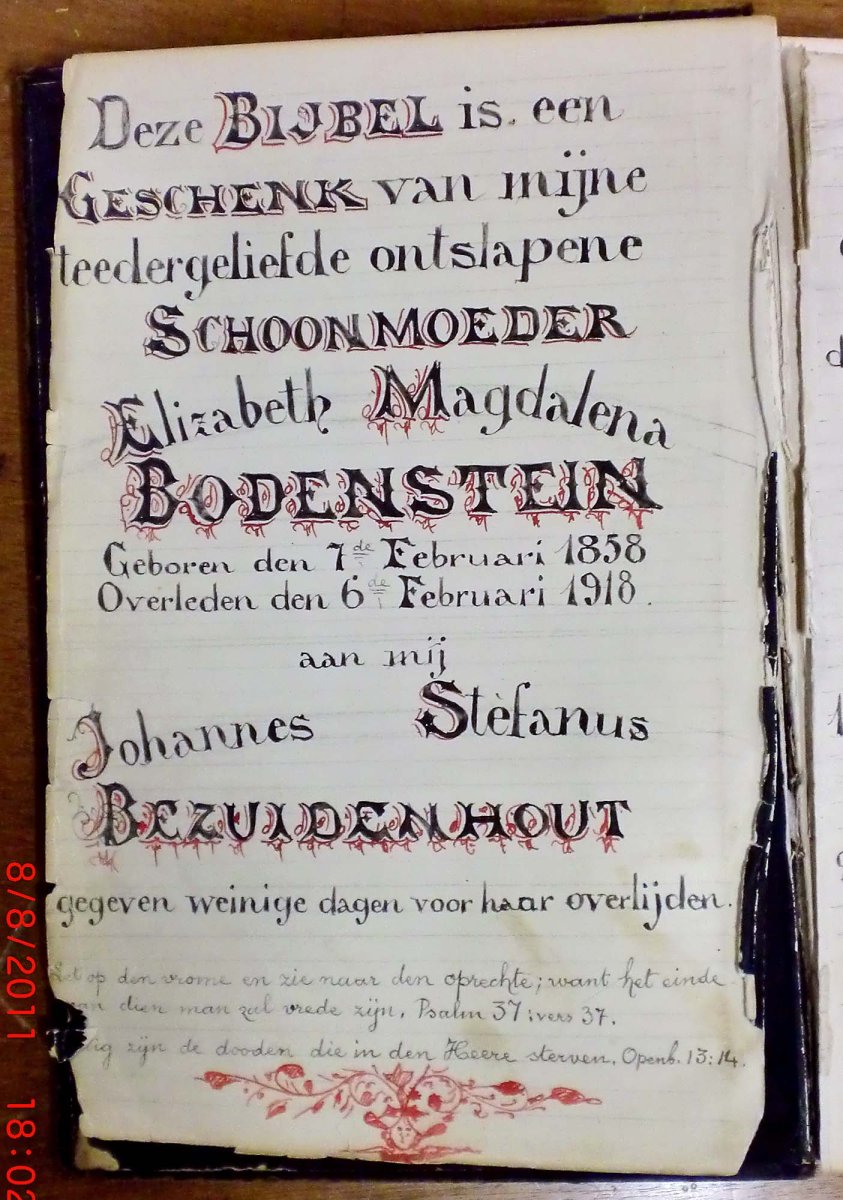 Deze BIJBEL is een
GESCHENK van mijne
teedergeliefde ontslapene
SCHOONMOEDER
Elizabeth Magdalena
BODENSTEIN
Geboren den 7de Februari 1858
Overleden den 6de Februari 1918.
aan mij
Johannes Stèfanus
BEZUIDENHOUT
gegeven weinige dagen voor haar overlijden.
Let op den vrome en zie naar den oprechte; want het einde
van dien man zal vrede zijn. Psalm 37: vers 37.
zijn de dooden die in den Heere sterven. Openb. 13:14.
8/8/2011 18:02